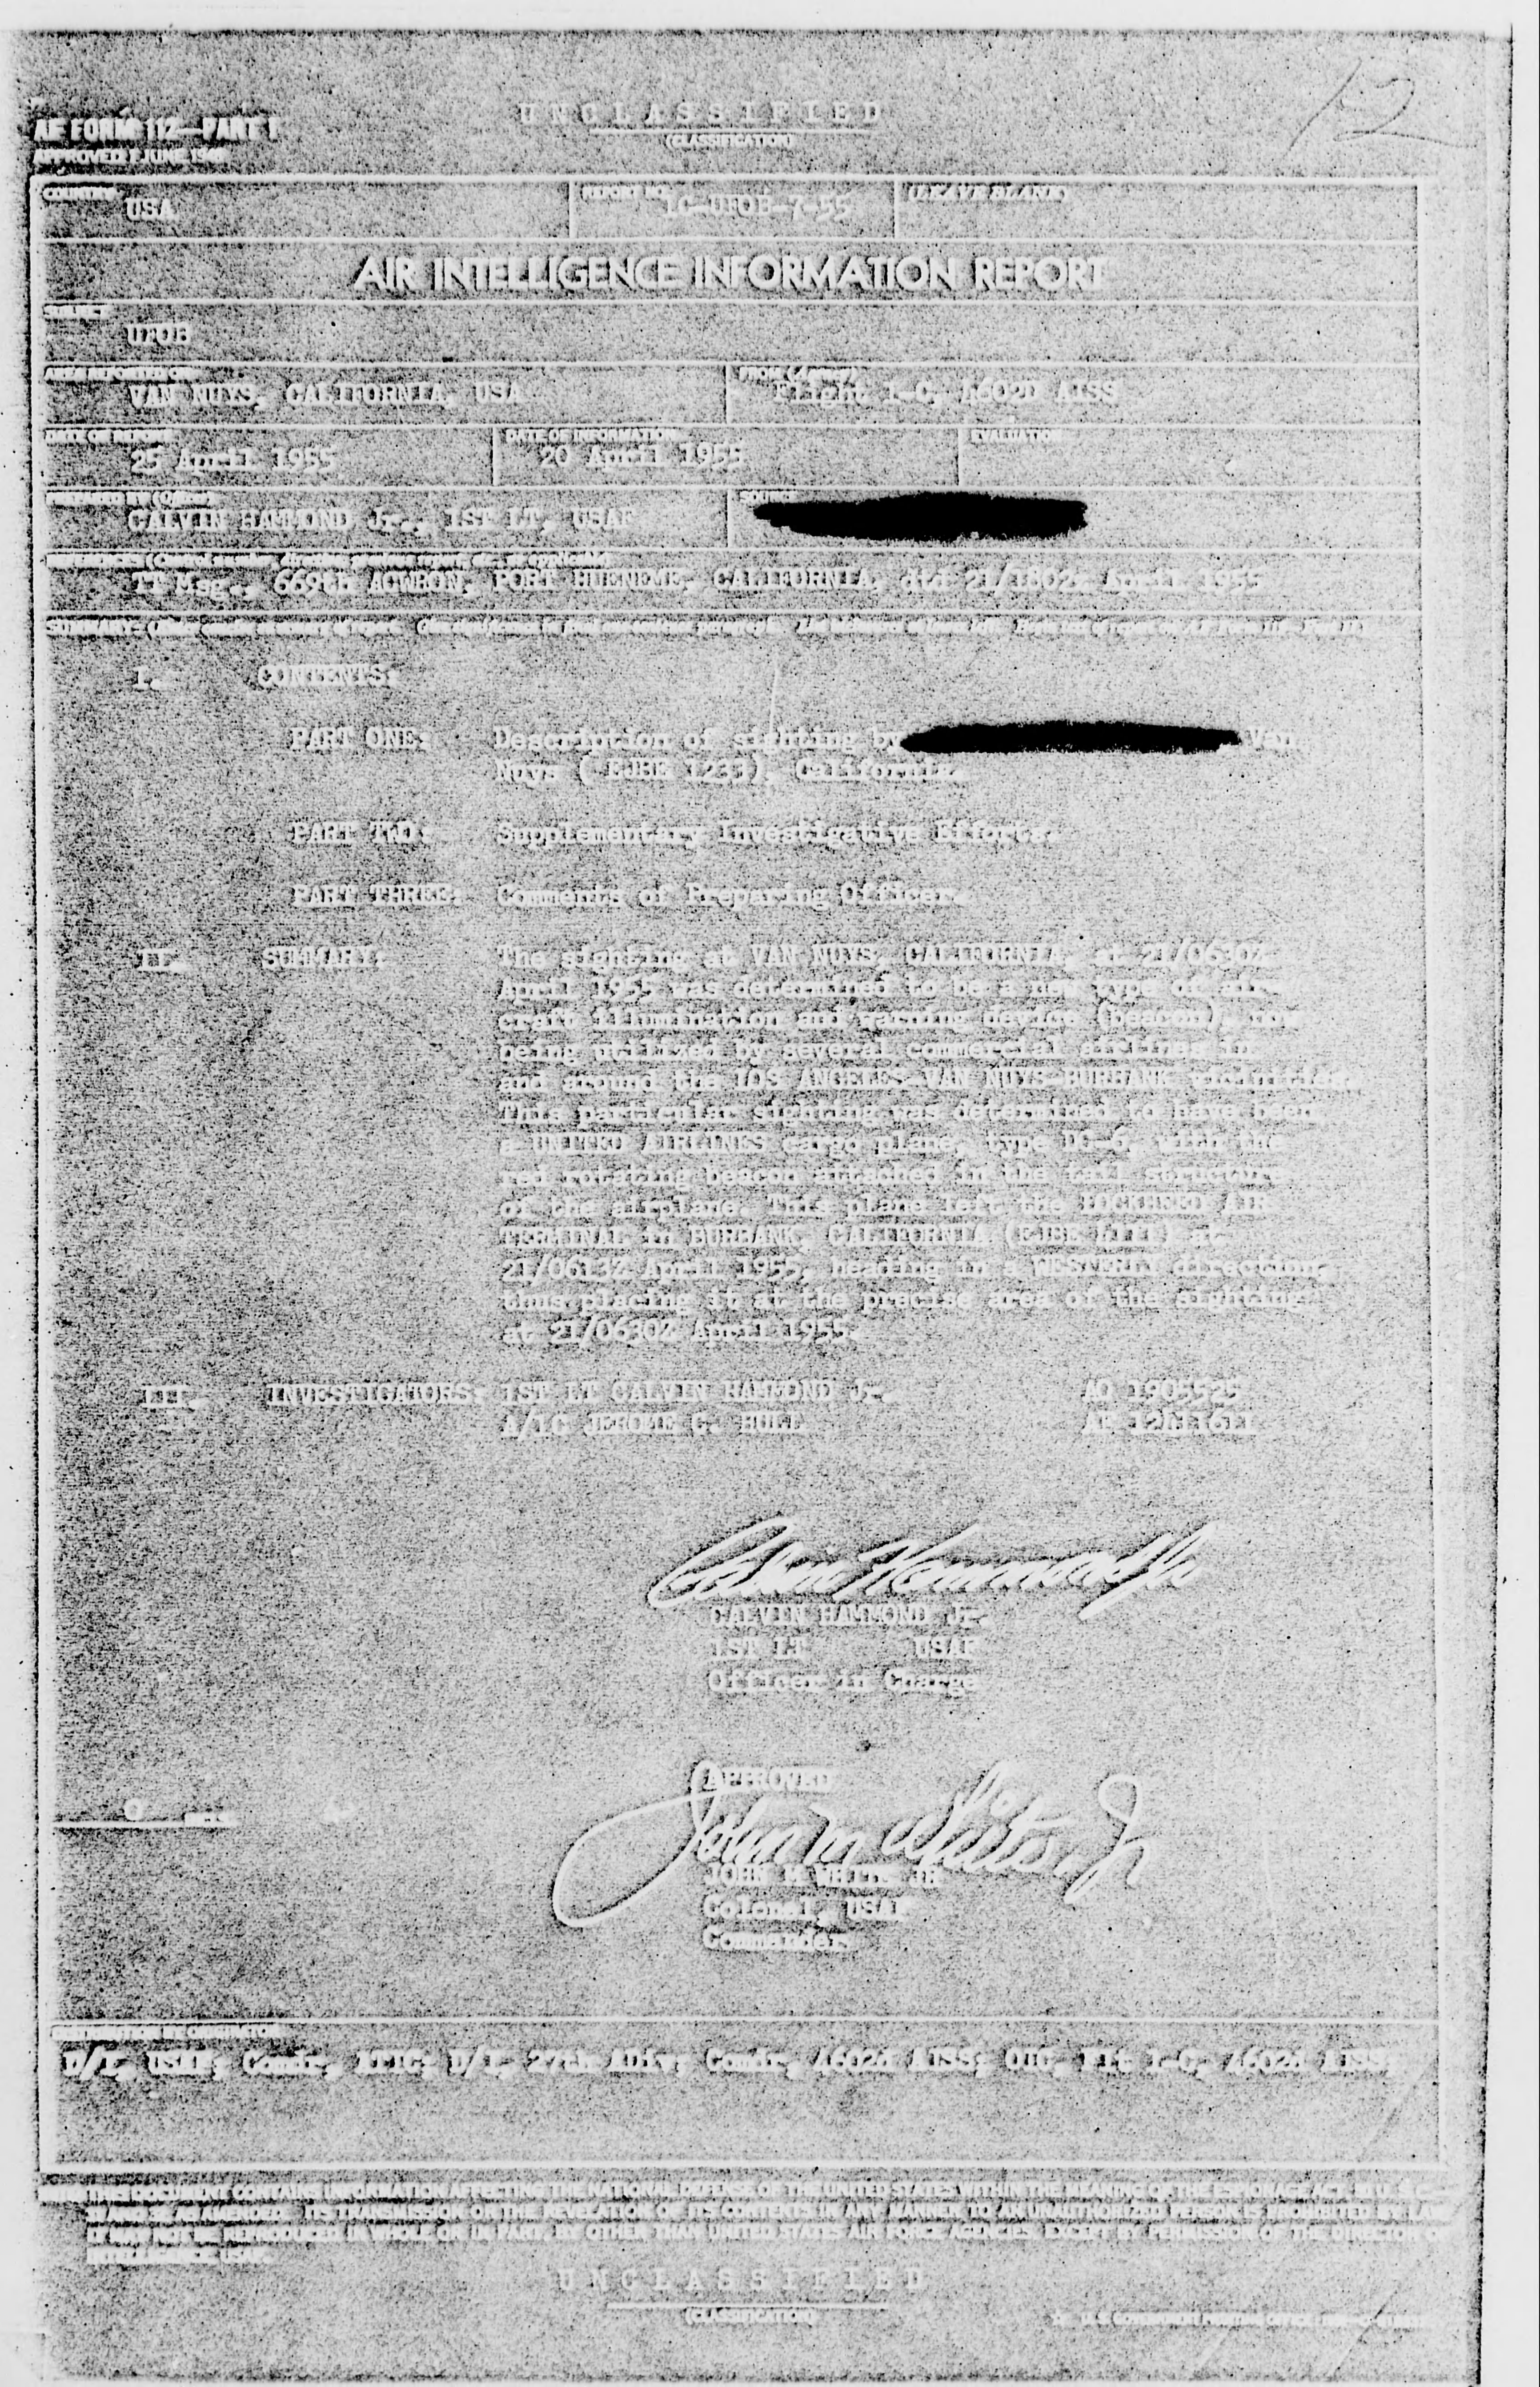 12
UNCLASSIFIED
(CLASSIFICATION)
AF FORM 112—PART I
APPROVED 1 JUNE 1948
COUNTRY
USA
REPORT NO.
1C-UFOB-7-55
(LEAVE BLANK)
AIR INTELLIGENCE INFORMATION REPORT
SUBJECT
UFOB
AREA REPORTED ON
VAN NUYS, CALIFORNIA, USA
FROM (Agency)
Flight 1-C, 4602D AISS
DATE OF REPORT
25 April 1955
DATE OF INFORMATION
20 April 1955
EVALUATION
PREPARED BY (Officer)
CALVIN HAMMOND Jr., 1ST LT, USAF
SOURCE
TT Msg., 669th ACWRON, PORT HUENEME, CALIFORNIA, dtd 21/1802Z April 1955
I. CONTENTS:
PART ONE: Description of sighting by Van
Nuys (EJBE 1233), California.
PART TWO: Supplementary Investigative Efforts.
PART THREE: Comments of Preparing Officer.
II. SUMMARY: The sighting at VAN NUYS, CALIFORNIA, at 21/0630Z
April 1955 was determined to be a new type of air-
craft illumination and warning device (beacon), now
being utilized by several commercial airlines in
and around the LOS ANGELES-VAN NUYS-BURBANK vicinities.
This particular sighting was determined to have been
a UNITED AIRLINES cargo plane, type DC-6, with the
red rotating beacon attached in the tail structure
of the airplane. This plane left the LOCKHEED AIR
TERMINAL in BURBANK, CALIFORNIA (EJBE) at
21/0613Z April 1955, heading in a WESTERLY direction,
thus placing it at the precise area of the sighting
at 21/0630Z April 1955.
III. INVESTIGATORS: 1ST LT CALVIN HAMMOND Jr. AO 1905525
A/1C JEROME C. HULL AF
Calvin Hammond Jr
CALVIN HAMMOND Jr.
1ST LT USAF
Officer in Charge
APPROVED
John M White Jr
JOHN M WHITE JR
Colonel, USAF
Commander
DISTRIBUTION BY ORIGINATOR
D/I, USAF; Comdr, ATIC; D/I, 27th ADiv; Comdr, 4602d AISS; OIC, Flt 1-C, 4602d AISS
THIS DOCUMENT CONTAINS INFORMATION AFFECTING THE NATIONAL DEFENSE OF THE UNITED STATES WITHIN THE MEANING OF THE ESPIONAGE ACT, 50 U.S.C.—
31 AND 32, AS AMENDED. ITS TRANSMISSION OR THE REVELATION OF ITS CONTENTS IN ANY MANNER TO AN UNAUTHORIZED PERSON IS PROHIBITED BY LAW.
IT MAY NOT BE REPRODUCED IN WHOLE OR IN PART, BY OTHER THAN UNITED STATES AIR FORCE AGENCIES, EXCEPT BY PERMISSION OF THE DIRECTOR OF
INTELLIGENCE, USAF.
UNCLASSIFIED
(CLASSIFICATION)
U.S. GOVERNMENT PRINTING OFFICE